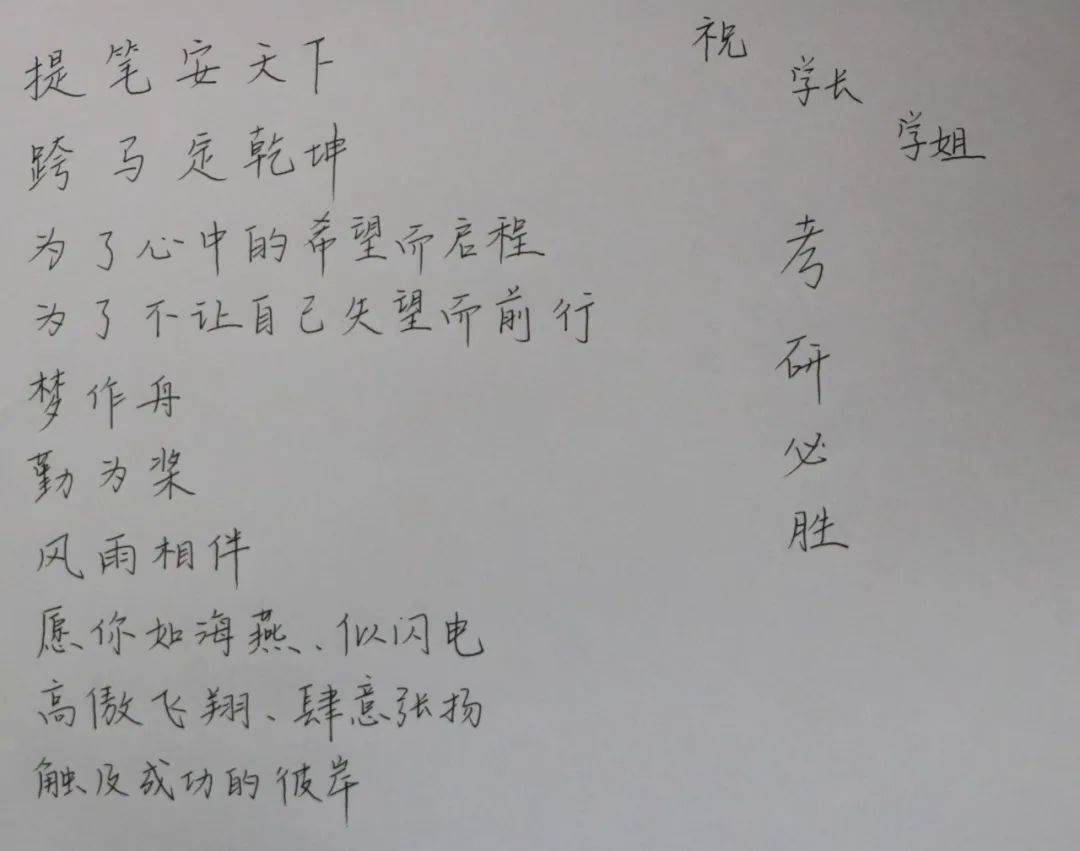 提笔安天下
跨马定乾坤
为了心中的希望而启程
为了不让自己失望而前行
梦作舟
勤为桨
风雨相伴
愿你如海燕、似闪电
高傲飞翔、肆意张扬
触及成功的彼岸
祝
学长
学姐
考
研
必
胜